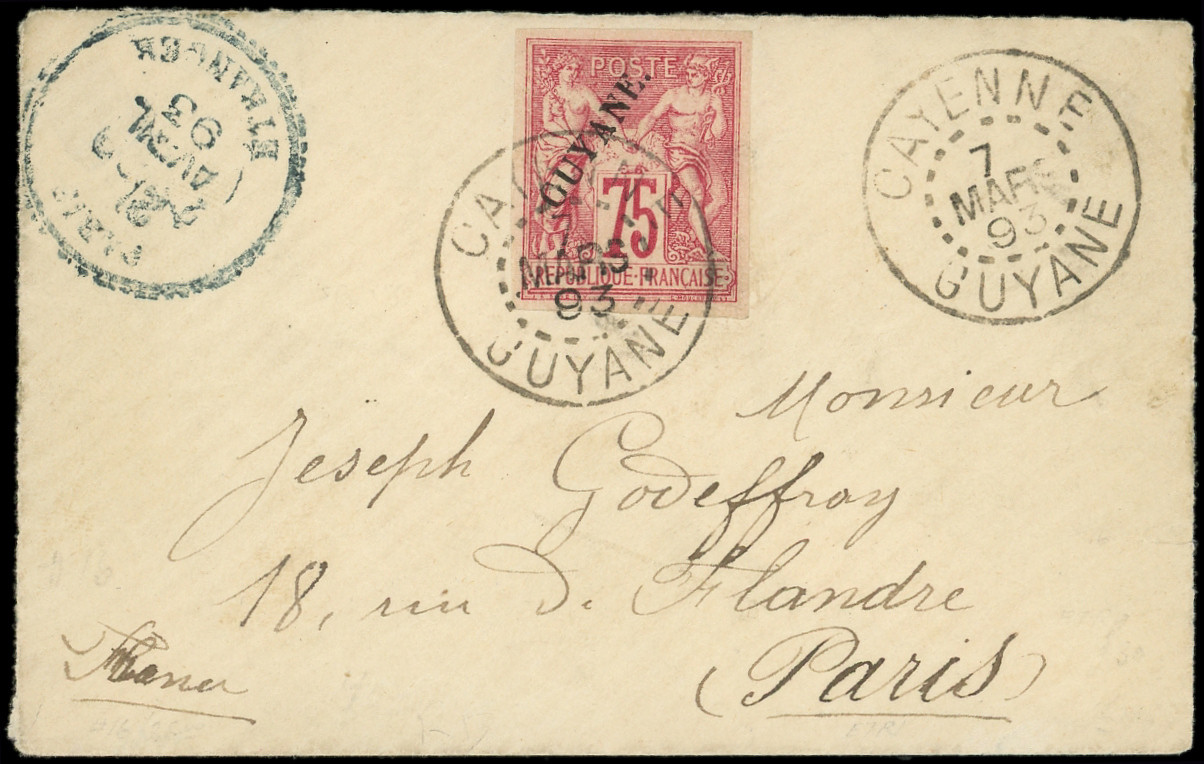 PARIS
2
AVRIL
93
ETRANGER
POSTE
GUYANE.
75
REPUBLIQUE FRANCAISE
CAYENNE
7
MARS
93
GUYANE
CAYENNE
7
MARS
93
GUYANE
Monsieur
Joseph Godeffroy
18, rue de Flandre
(Paris)
France